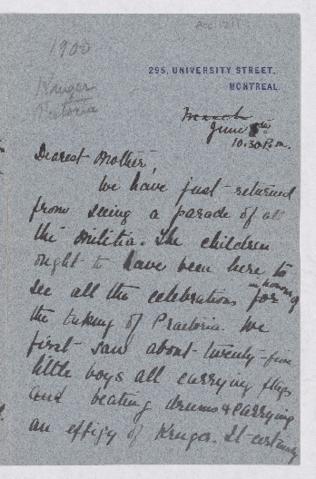 Acc 1211
1900
Kruger
Pretoria
295, UNIVERSITY STREET,
MONTREAL
June 5th
10.30 P.m.
Dearest Mother,
We have just returned
from seeing a parade of all
the Militia. The children
ought to have been here to
see all the celebrations in honour of
the taking of Praetoria. We
first saw about twenty-five
little boys all carrying flags
and beating drums & carrying
an effigy of Kruger. It certainly